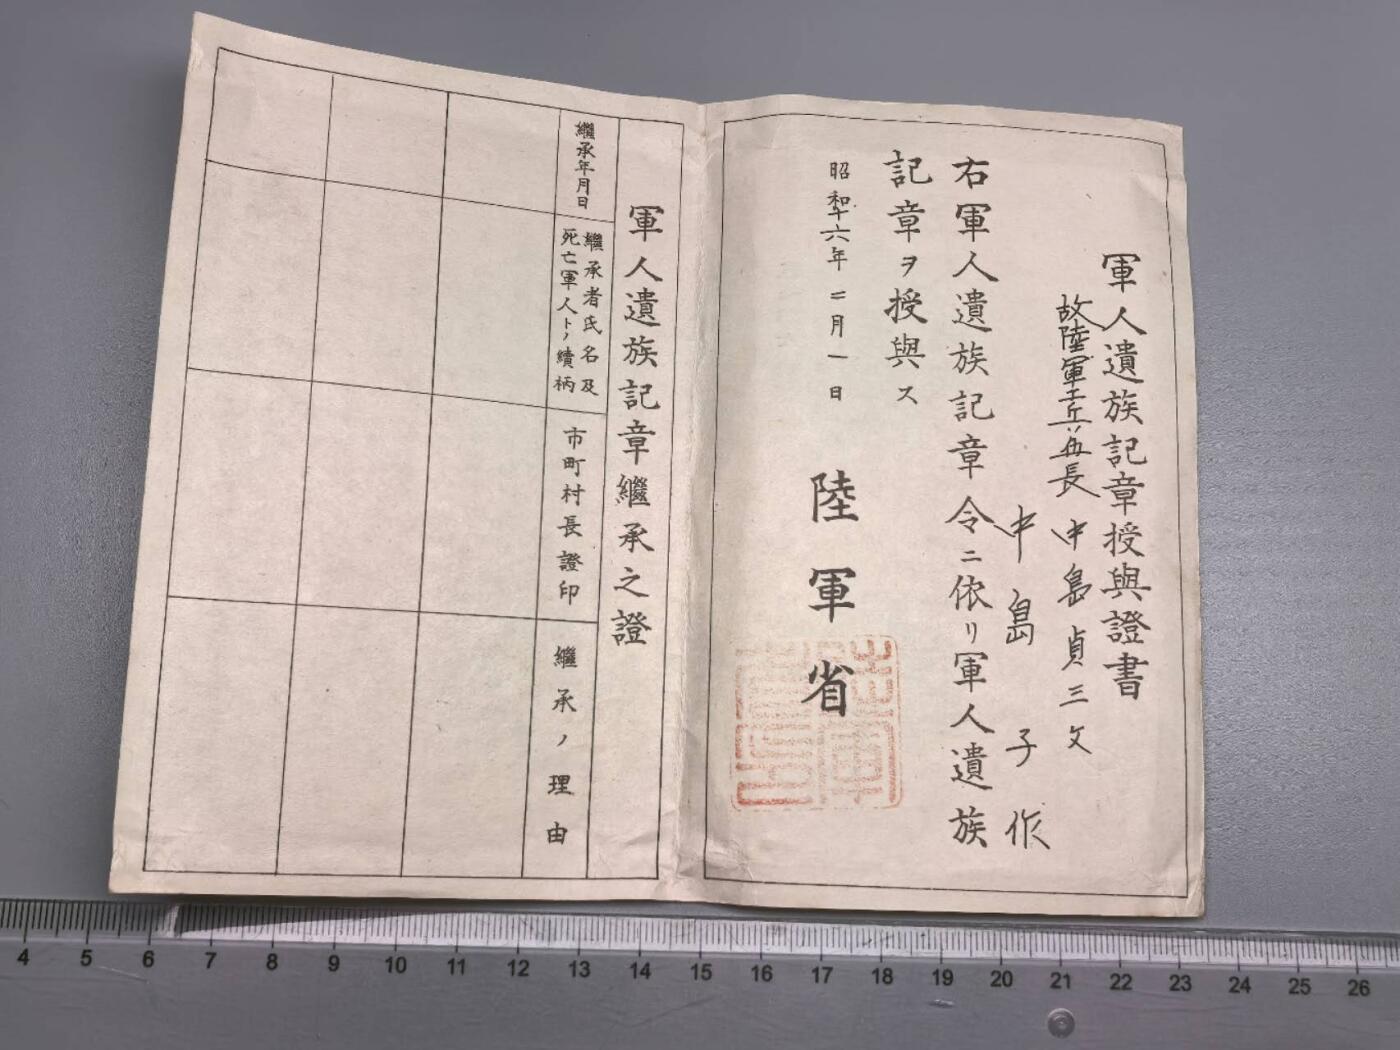 軍人遺族記章授與證書
故陸軍工兵伍長 中島貞三父
中島子作
右軍人遺族記章令ニ依リ軍人遺族
記章ヲ授與ス
昭和十六年二月一日
陸軍省
軍人遺族記章繼承之證
繼承年月日
繼承者氏名及
死亡軍人トノ續柄
市町村長證印
繼承ノ理由
4 5 6 7 8 9 10 11 12 13 14 15 16 17 18 19 20 21 22 23 24 25 26